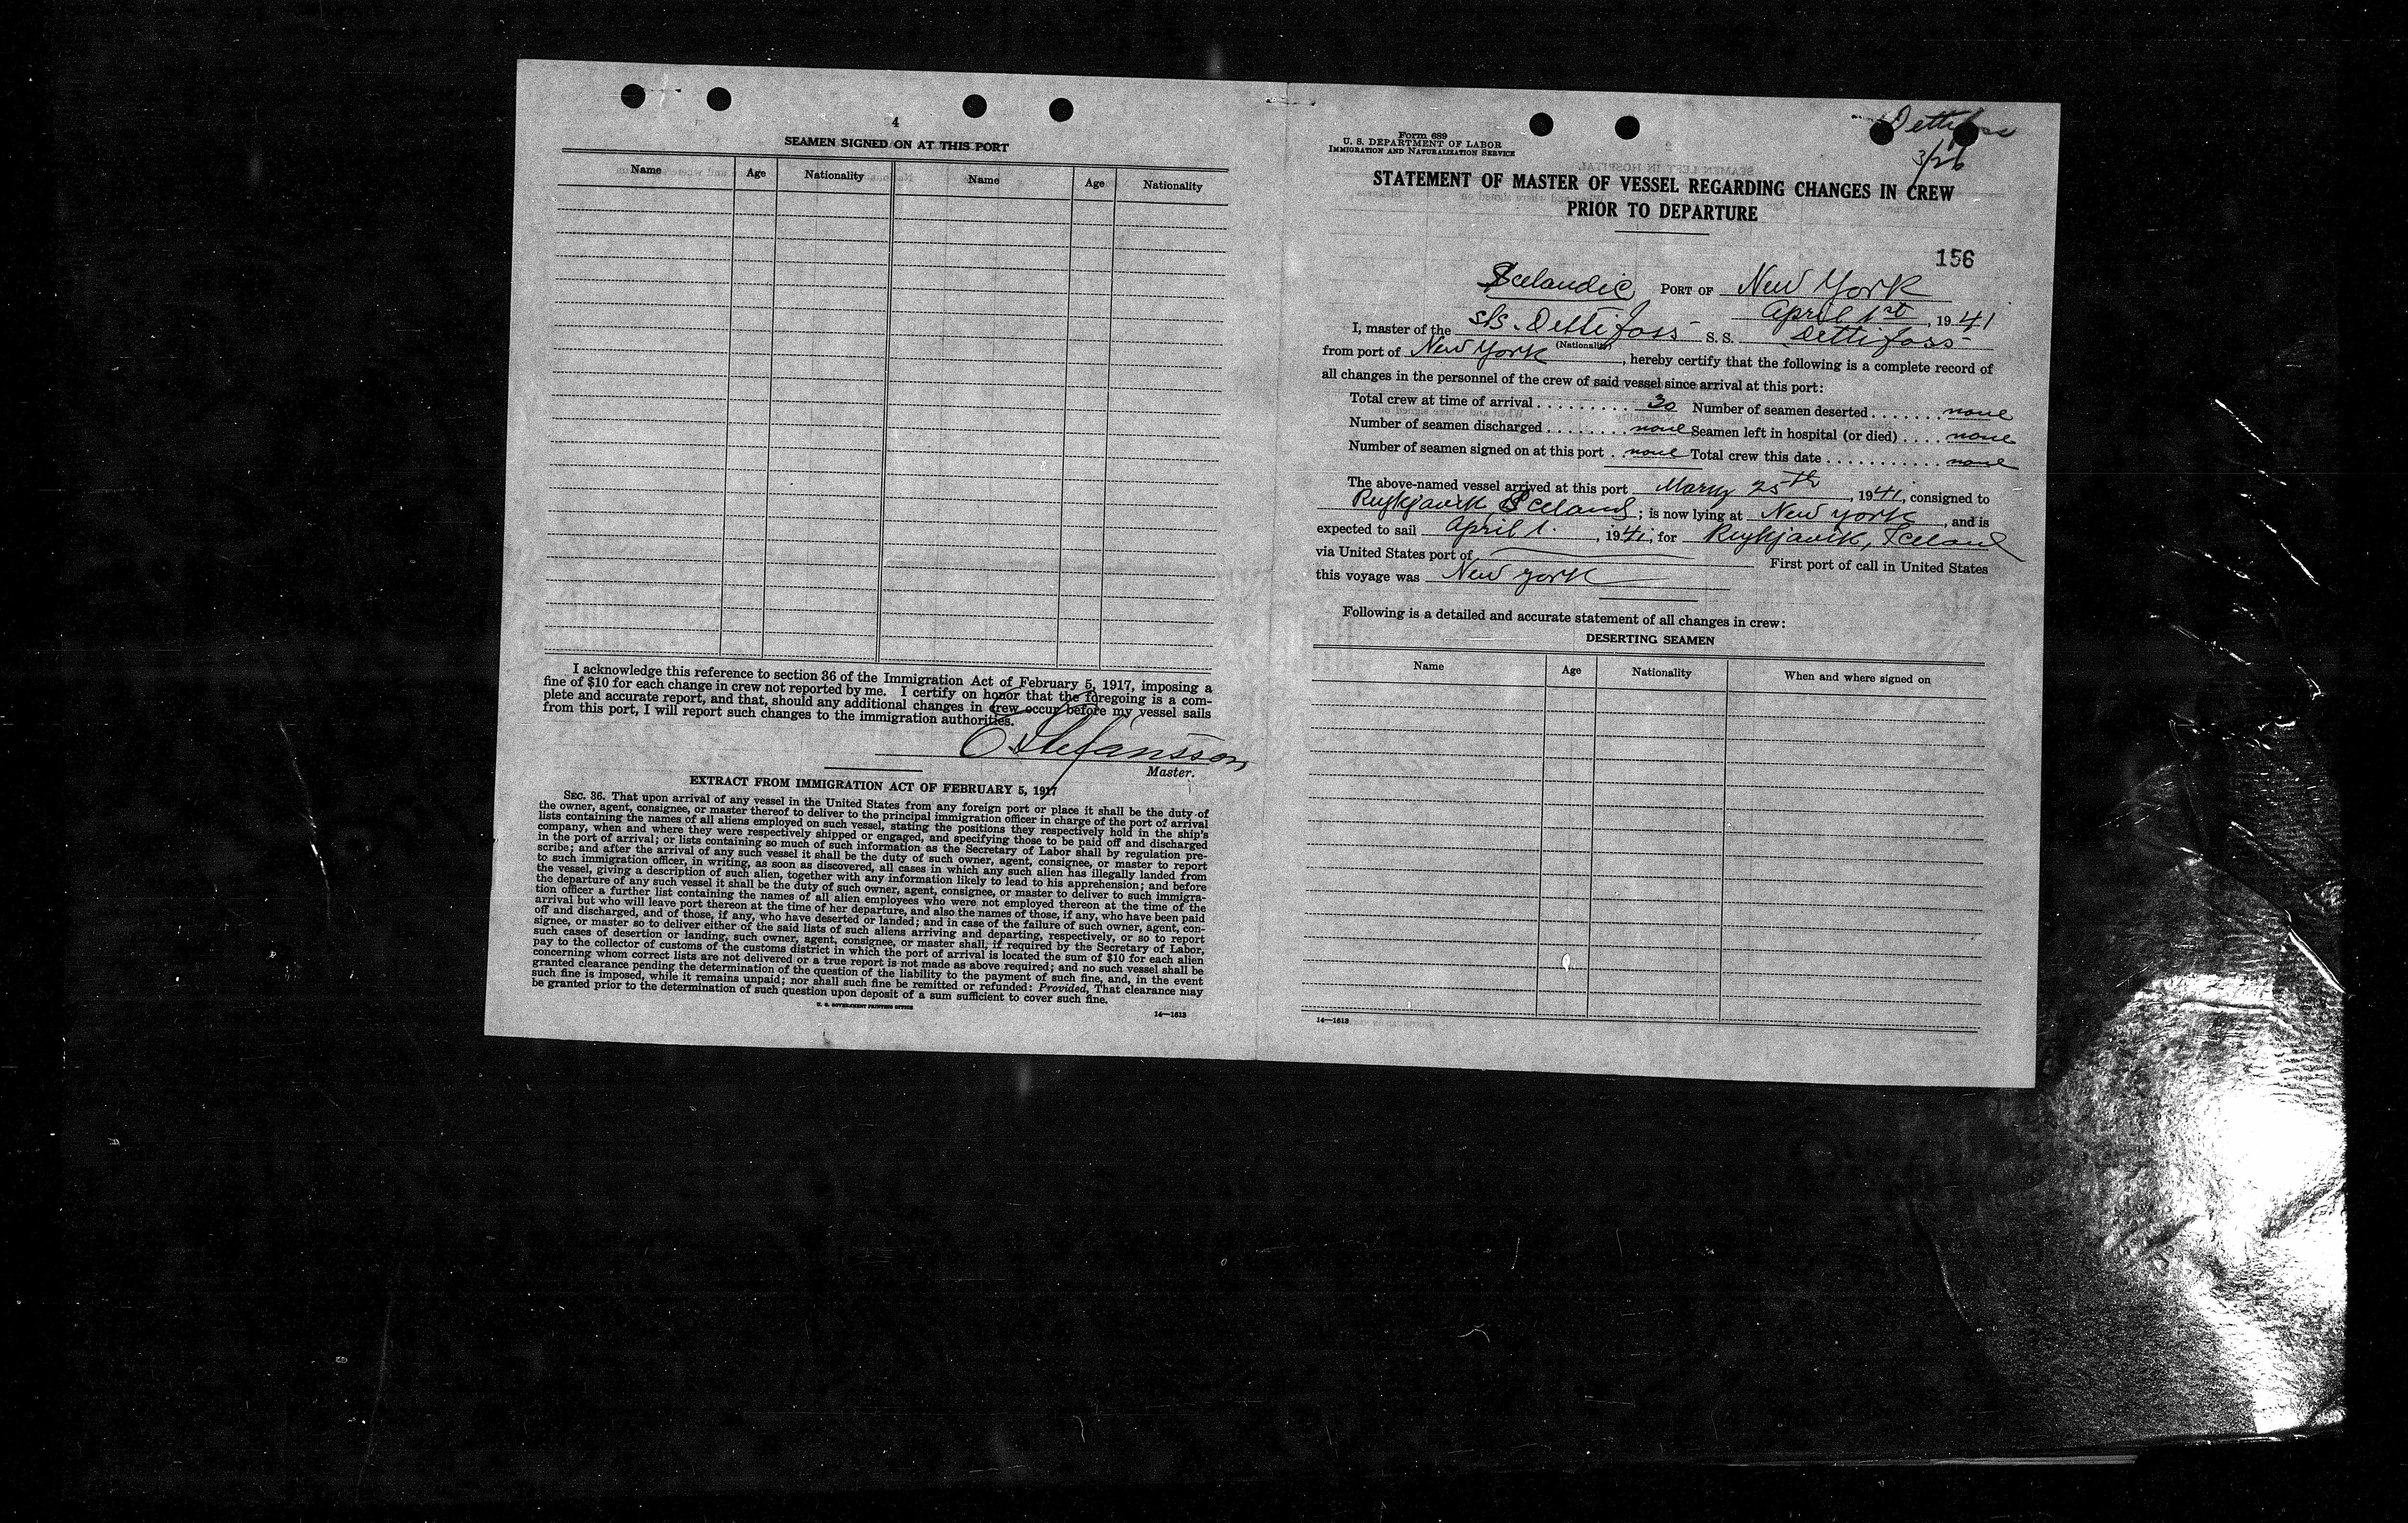 4
SEAMEN SIGNED ON AT THIS PORT
Name Age Nationality Name Age Nationality
I acknowledge this reference to section 36 of the Immigration Act of February 5, 1917, imposing a
fine of $10 for each change in crew not reported by me. I certify on honor that the foregoing is a com-
plete and accurate report, and that, should any additional changes in crew occur before my vessel sails
from this port, I will report such changes to the immigration authorities.
E Stefánsson
Master.
EXTRACT FROM IMMIGRATION ACT OF FEBRUARY 5, 1917
SEC. 36. That upon arrival of any vessel in the United States from any foreign port or place it shall be the duty of
the owner, agent, consignee, or master thereof to deliver to the principal immigration officer in charge of the port of arrival
lists containing the names of all aliens employed on such vessel, stating the positions they respectively hold in the ship's
company, when and where they were respectively shipped or engaged, and specifying those to be paid off and discharged
in the port of arrival; or lists containing so much of such information as the Secretary of Labor shall by regulation pre-
scribe; and after the arrival of any such vessel it shall be the duty of such owner, agent, consignee, or master to report
to such immigration officer, in writing, as soon as discovered, all cases in which any such alien has illegally landed from
the vessel, giving a description of such alien, together with any information likely to lead to his apprehension; and before
the departure of any such vessel it shall be the duty of such owner, agent, consignee, or master to deliver to such immigra-
tion officer a further list containing the names of all alien employees who were not employed thereon at the time of the
arrival but who will leave port thereon at the time of her departure, and also the names of those, if any, who have been paid
off and discharged, and of those, if any, who have deserted or landed; and in case of the failure of such owner, agent, con-
signee, or master so to deliver either of the said lists of such aliens arriving and departing, respectively, or so to report
such cases of desertion or landing, such owner, agent, consignee, or master shall, if required by the Secretary of Labor,
pay to the collector of customs of the customs district in which the port of arrival is located the sum of $10 for each alien
concerning whom correct lists are not delivered or a true report is not made as above required; and no such vessel shall be
granted clearance pending the determination of the question of the liability to the payment of such fine, and, in the event
such fine is imposed, while it remains unpaid; nor shall such fine be remitted or refunded: Provided, That clearance may
be granted prior to the determination of such question upon deposit of a sum sufficient to cover such fine.
U. S. GOVERNMENT PRINTING OFFICE
14—1613
Dettifoss
3/26
Form 689
U. S. DEPARTMENT OF LABOR
IMMIGRATION AND NATURALIZATION SERVICE
STATEMENT OF MASTER OF VESSEL REGARDING CHANGES IN CREW
PRIOR TO DEPARTURE
156
Icelandic PORT OF New York
April 1st, 1941
I, master of the s/s. Dettifoss S. S. Dettifoss
(Nationality)
from port of New York, hereby certify that the following is a complete record of
all changes in the personnel of the crew of said vessel since arrival at this port:
Total crew at time of arrival . . . . . . . . . . 30 Number of seamen deserted . . . . . . . none
Number of seamen discharged . . . . . . . . none Seamen left in hospital (or died) . . . . none
Number of seamen signed on at this port . none Total crew this date . . . . . . . . . . . . none
The above-named vessel arrived at this port 25th, 1941, consigned to
Reykjavik, Iceland; is now lying at New York, and is
expected to sail April 1., 1941, for Reykjavik, Iceland
via United States port of First port of call in United States
this voyage was New York
Following is a detailed and accurate statement of all changes in crew:
DESERTING SEAMEN
Name Age Nationality When and where signed on
14—1613